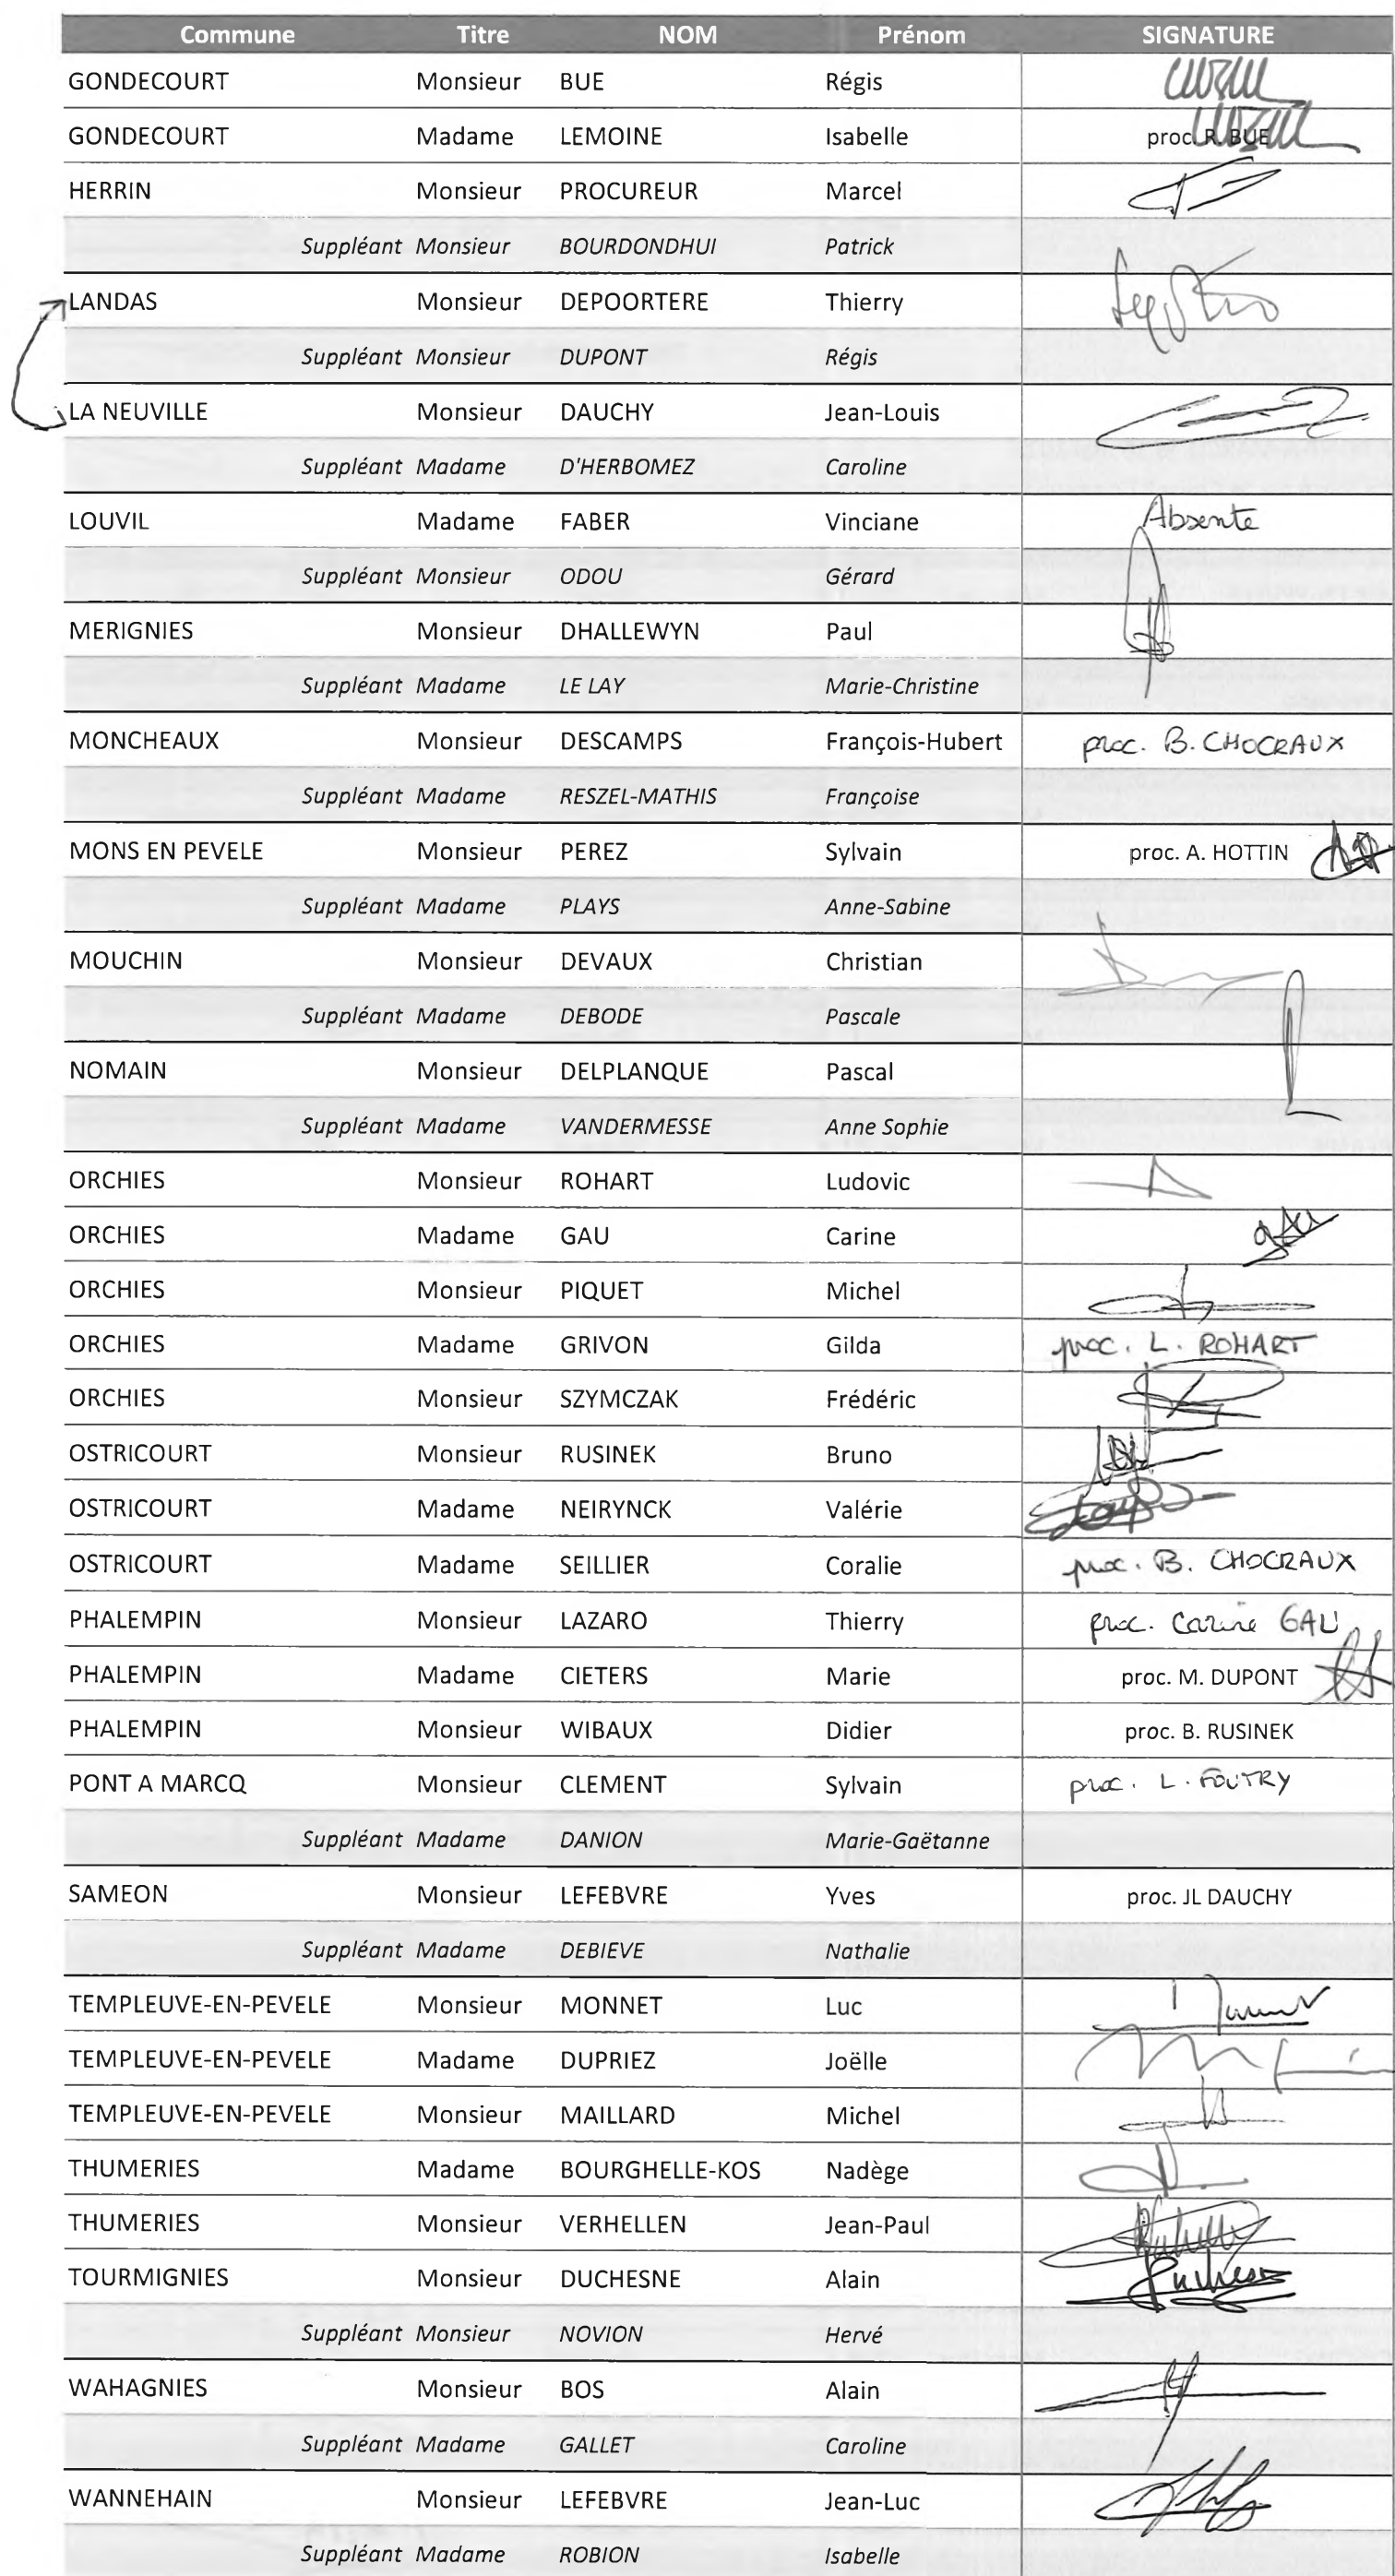 Commune Titre NOM Prénom SIGNATURE
GONDECOURT Monsieur BUE Régis
GONDECOURT Madame LEMOINE Isabelle proc. R. BUE
HERRIN Monsieur PROCUREUR Marcel
Suppléant Monsieur BOURDONDHUI Patrick
LANDAS Monsieur DEPOORTERE Thierry
Suppléant Monsieur DUPONT Régis
LA NEUVILLE Monsieur DAUCHY Jean-Louis
Suppléant Madame D'HERBOMEZ Caroline
LOUVIL Madame FABER Vinciane Absente
Suppléant Monsieur ODOU Gérard
MERIGNIES Monsieur DHALLEWYN Paul
Suppléant Madame LE LAY Marie-Christine
MONCHEAUX Monsieur DESCAMPS François-Hubert proc. B. CHOCRAUX
Suppléant Madame RESZEL-MATHIS Françoise
MONS EN PEVELE Monsieur PEREZ Sylvain proc. A. HOTTIN
Suppléant Madame PLAYS Anne-Sabine
MOUCHIN Monsieur DEVAUX Christian
Suppléant Madame DEBODE Pascale
NOMAIN Monsieur DELPLANQUE Pascal
Suppléant Madame VANDERMESSE Anne Sophie
ORCHIES Monsieur ROHART Ludovic
ORCHIES Madame GAU Carine
ORCHIES Monsieur PIQUET Michel
ORCHIES Madame GRIVON Gilda proc. L. ROHART
ORCHIES Monsieur SZYMCZAK Frédéric
OSTRICOURT Monsieur RUSINEK Bruno
OSTRICOURT Madame NEIRYNCK Valérie
OSTRICOURT Madame SEILLIER Coralie proc. B. CHOCRAUX
PHALEMPIN Monsieur LAZARO Thierry proc. Carine GAU
PHALEMPIN Madame CIETERS Marie proc. M. DUPONT
PHALEMPIN Monsieur WIBAUX Didier proc. B. RUSINEK
PONT A MARCQ Monsieur CLEMENT Sylvain proc. L. FOUTRY
Suppléant Madame DANION Marie-Gaëtanne
SAMEON Monsieur LEFEBVRE Yves proc. JL DAUCHY
Suppléant Madame DEBIEVE Nathalie
TEMPLEUVE-EN-PEVELE Monsieur MONNET Luc
TEMPLEUVE-EN-PEVELE Madame DUPRIEZ Joëlle
TEMPLEUVE-EN-PEVELE Monsieur MAILLARD Michel
THUMERIES Madame BOURGHELLE-KOS Nadège
THUMERIES Monsieur VERHELLEN Jean-Paul
TOURMIGNIES Monsieur DUCHESNE Alain
Suppléant Monsieur NOVION Hervé
WAHAGNIES Monsieur BOS Alain
Suppléant Madame GALLET Caroline
WANNEHAIN Monsieur LEFEBVRE Jean-Luc
Suppléant Madame ROBION Isabelle